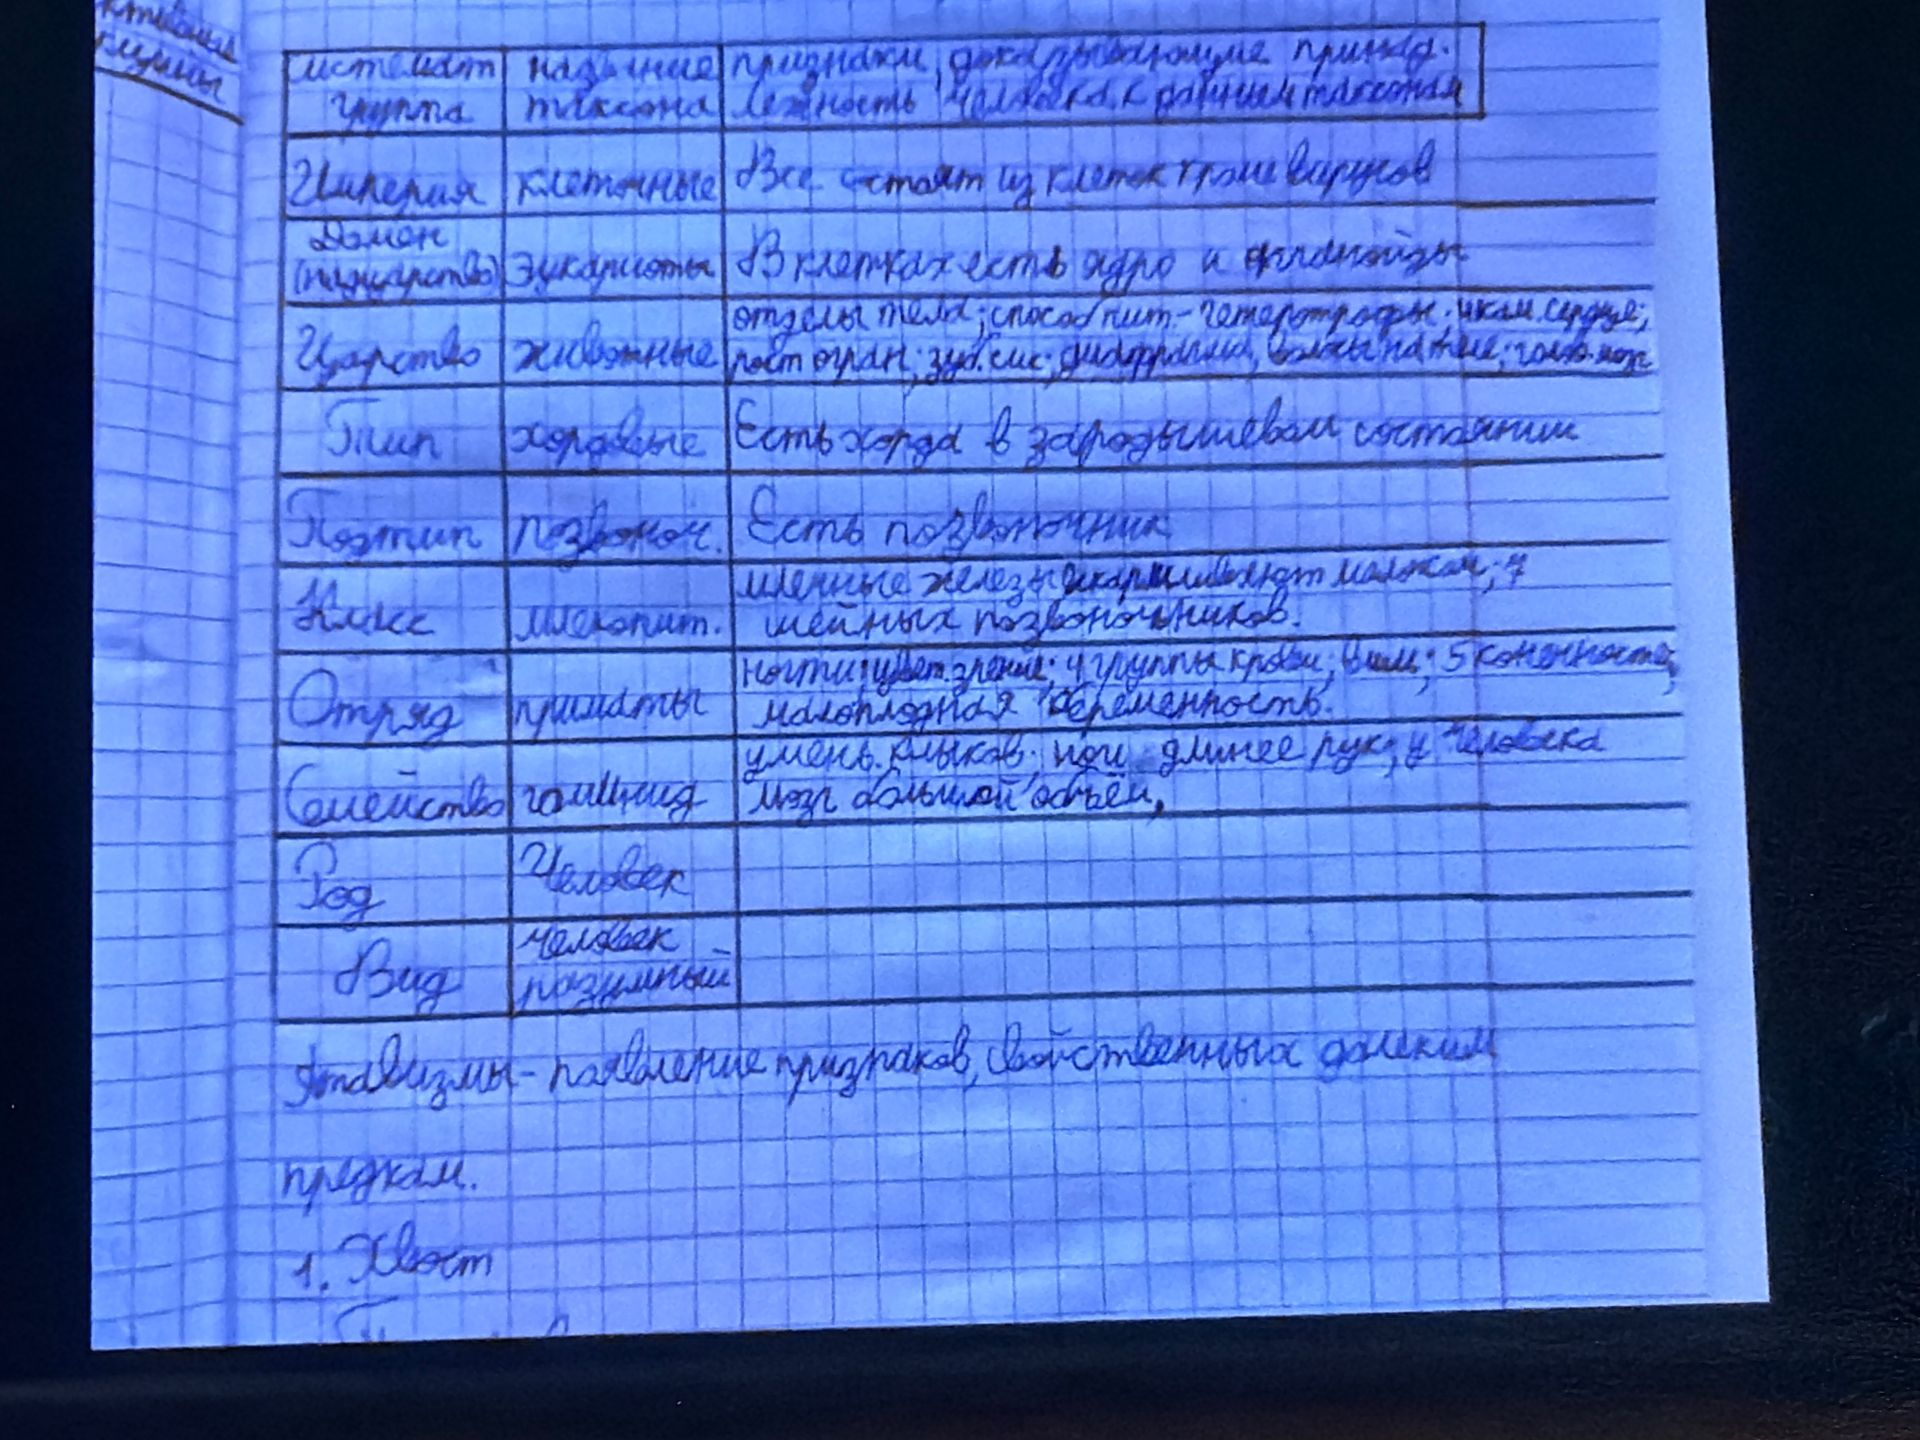 системат группа | название таксона | признаки, доказывающие принад-
лежность человека к данным таксонам
Империя | клеточные | Все состоят из клеток кроме вирусов
Домен (надцарство) | эукариоты | В клетках есть ядро и
Царство | животные | отделы тела; способ пит.- гетеротрофы; 4 кам. сердце;
рост огран; зуб. сис; диафрагма, волосы на теле;
Тип | хордовые | Есть хорда в зародышевом состоянии
Подтип | позвоноч. | Есть позвоночник
Класс | млекопит. | млечные железы вскармливают молоком; 7
шейных позвоночников.
Отряд | приматы | ногти; цвет. зрение; 4 группы крови; 5 конечности;
малоплодная беременность.
Семейство | гоминид | умень. клыков; ноги длинее рук; у человека
мозг большой объём,
Род | Человек
Вид | человек разумный
Атавизмы - появление признаков, свойственных далеким
предкам.
1. Хвост